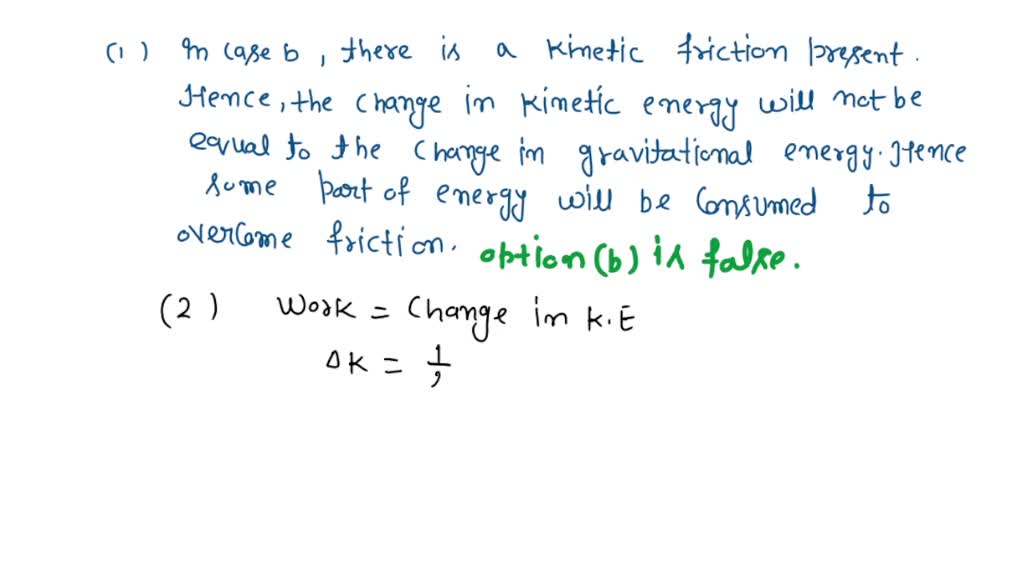 (1) In case b, there is a kinetic friction present.
Hence, the change in kinetic energy will not be
equal to the change in gravitational energy. Hence
some part of energy will be consumed to
overcome friction. option (b) is false.
(2) Work = Change in K.E
ΔK = 1/